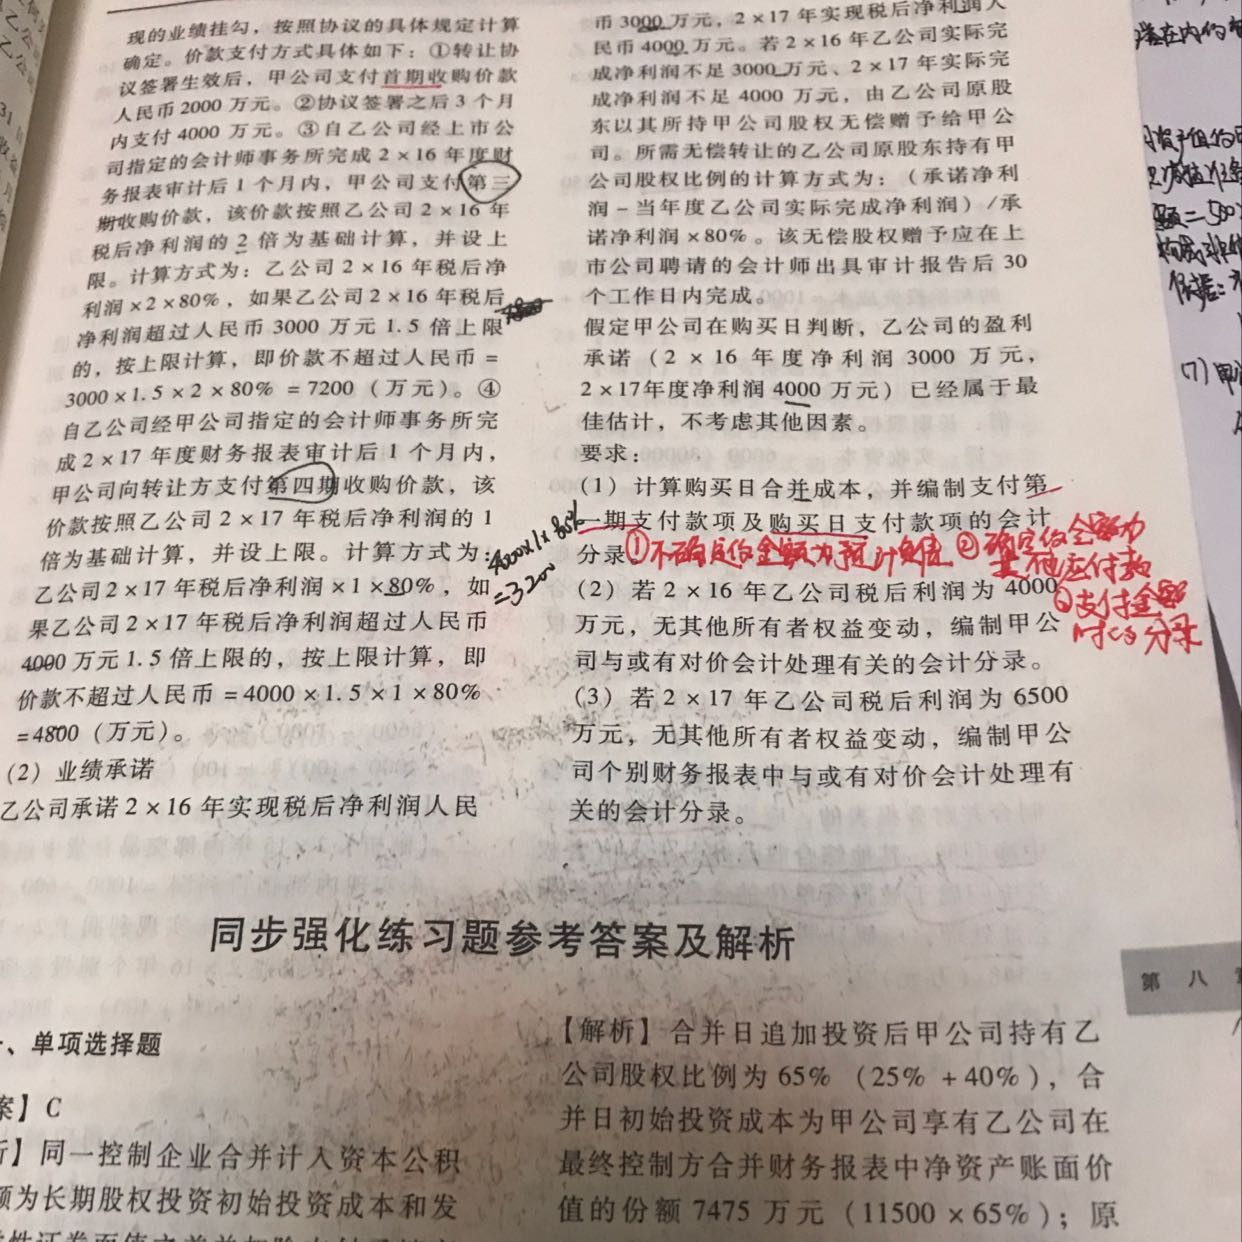 现的业绩挂勾，按照协议的具体规定计算
确定。价款支付方式具体如下：①转让协
议签署生效后，甲公司支付首期收购价款
人民币2000万元。②协议签署之后3个月
内支付4000万元。③自乙公司经上市公
司指定的会计师事务所完成2×16年度财
务报表审计后1个月内，甲公司支付第三
期收购价款，该价款按照乙公司2×16年
税后净利润的2倍为基础计算，并设上
限。计算方式为：乙公司2×16年税后净
利润×2×80%，如果乙公司2×16年税后
净利润超过人民币3000万元1.5倍上限
的，按上限计算，即价款不超过人民币＝
3000×1.5×2×80%＝7200（万元）。④
自乙公司经甲公司指定的会计师事务所完
成2×17年度财务报表审计后1个月内，
甲公司向转让方支付第四期收购价款，该
价款按照乙公司2×17年税后净利润的1
倍为基础计算，并设上限。计算方式为：
乙公司2×17年税后净利润×1×80%，如
果乙公司2×17年税后净利润超过人民币
4000万元1.5倍上限的，按上限计算，即
价款不超过人民币＝4000×1.5×1×80%
=4800（万元）。
（2）业绩承诺
乙公司承诺2×16年实现税后净利润人民
4000×1×80%
=3200
币3000万元，2×17年实现税后净利润人
民币4000万元。若2×16年乙公司实际完
成净利润不足3000万元、2×17年实际完
成净利润不足4000万元，由乙公司原股
东以其所持甲公司股权无偿赠予给甲公
司。所需无偿转让的乙公司原股东持有甲
公司股权比例的计算方式为：（承诺净利
润－当年度乙公司实际完成净利润）/承
诺净利润×80%。该无偿股权赠予应在上
市公司聘请的会计师出具审计报告后30
个工作日内完成。
假定甲公司在购买日判断，乙公司的盈利
承诺（2×16年度净利润3000万元，
2×17年度净利润4000万元）已经属于最
佳估计，不考虑其他因素。
要求：
（1）计算购买日合并成本，并编制支付第
一期支付款项及购买日支付款项的会计
分录。
①不确定的金额为预计负债 ②确定的金额为
其他应付款
③支付金额
时的分录
（2）若2×16年乙公司税后利润为4000
万元，无其他所有者权益变动，编制甲公
司与或有对价会计处理有关的会计分录。
（3）若2×17年乙公司税后利润为6500
万元，无其他所有者权益变动，编制甲公
司个别财务报表中与或有对价会计处理有
关的会计分录。
同步强化练习题参考答案及解析
第八章
、单项选择题
案】C
析】同一控制企业合并计入资本公积
额为长期股权投资初始投资成本和发
【解析】合并日追加投资后甲公司持有乙
公司股权比例为65%（25%+40%），合
并日初始投资成本为甲公司享有乙公司在
最终控制方合并财务报表中净资产账面价
值的份额7475万元（11500×65%）；原